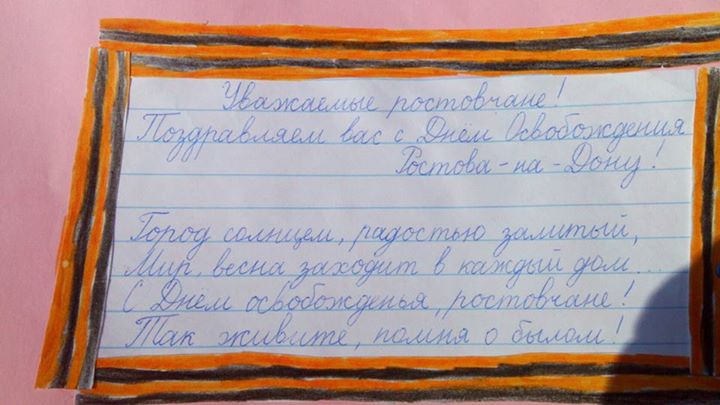 Уважаемые ростовчане!
Поздравляем вас с Днём Освобождения
Ростова-на-Дону!
Город солнцем, радостью залитый,
Мир, весна заходит в каждый дом...
С Днём освобожденья, ростовчане!
Так живите, помня о былом!